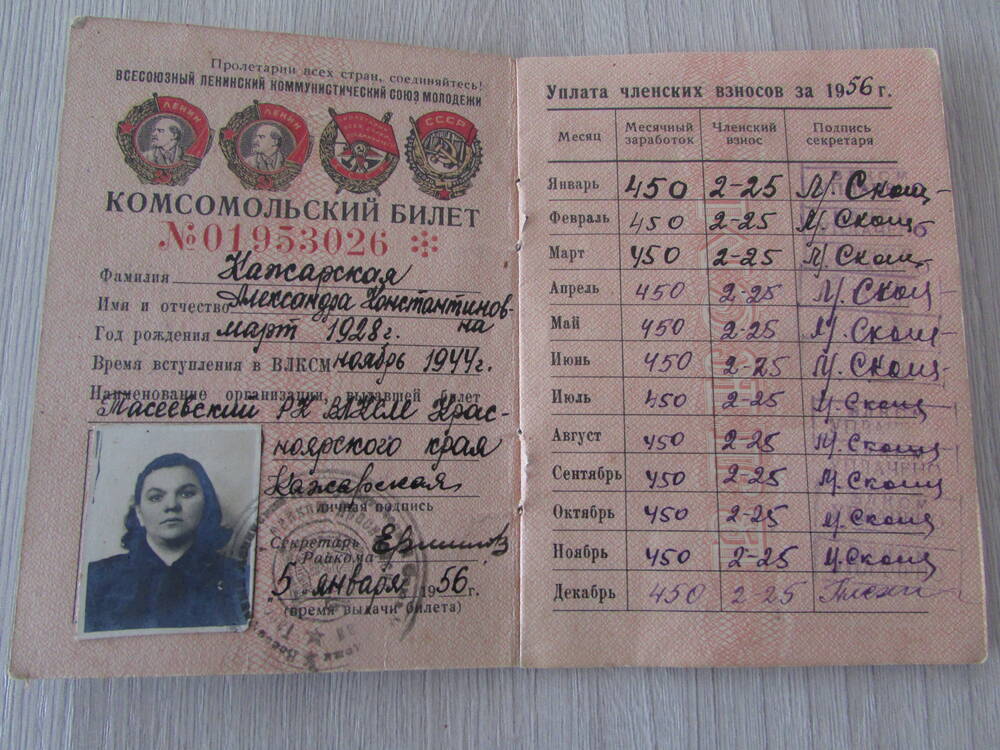 Пролетарии всех стран, соединяйтесь!
ВСЕСОЮЗНЫЙ ЛЕНИНСКИЙ КОММУНИСТИЧЕСКИЙ СОЮЗ МОЛОДЕЖИ
ЛЕНИН ЛЕНИН СССР
КОМСОМОЛЬСКИЙ БИЛЕТ
№01953026
Фамилия Кажарская
Имя и отчество Александра Константинов-
на
Год рождения март 1928г.
Время вступления в ВЛКСМ ноябрь 1944г.
Наименование организации, выдавшей билет
Тасеевский РК ВЛКСМ Крас-
ноярского края
Кажарская
личная подпись
Секретарь
Райкома
5 января 1956г.
(время выдачи билета)
Уплата членских взносов за 1956 г.
Месяц Месячный заработок Членский взнос Подпись секретаря
Январь 450 2-25
Февраль 450 2-25
Март 450 2-25
Апрель 450 2-25
Май 450 2-25
Июнь 450 2-25
Июль 450 2-25
Август 450 2-25
Сентябрь 450 2-25
Октябрь 450 2-25
Ноябрь 450 2-25
Декабрь 450 2-25